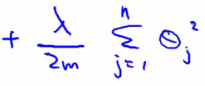 + \frac{λ}{2m} \sum_{j=1}^{n} Θ_j^2